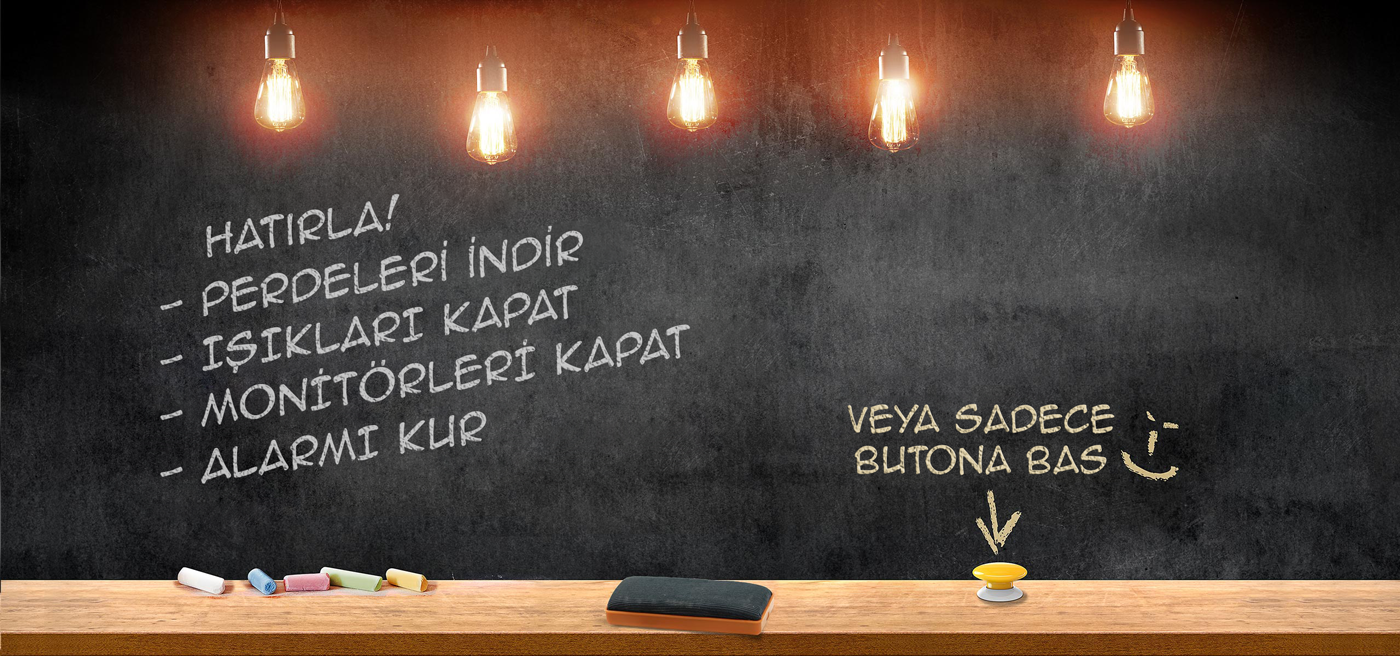 HATIRLA!
- PERDELERİ İNDİR
- IŞIKLARI KAPAT
- MONİTÖRLERİ KAPAT
- ALARMI KUR
VEYA SADECE
BUTONA BAS